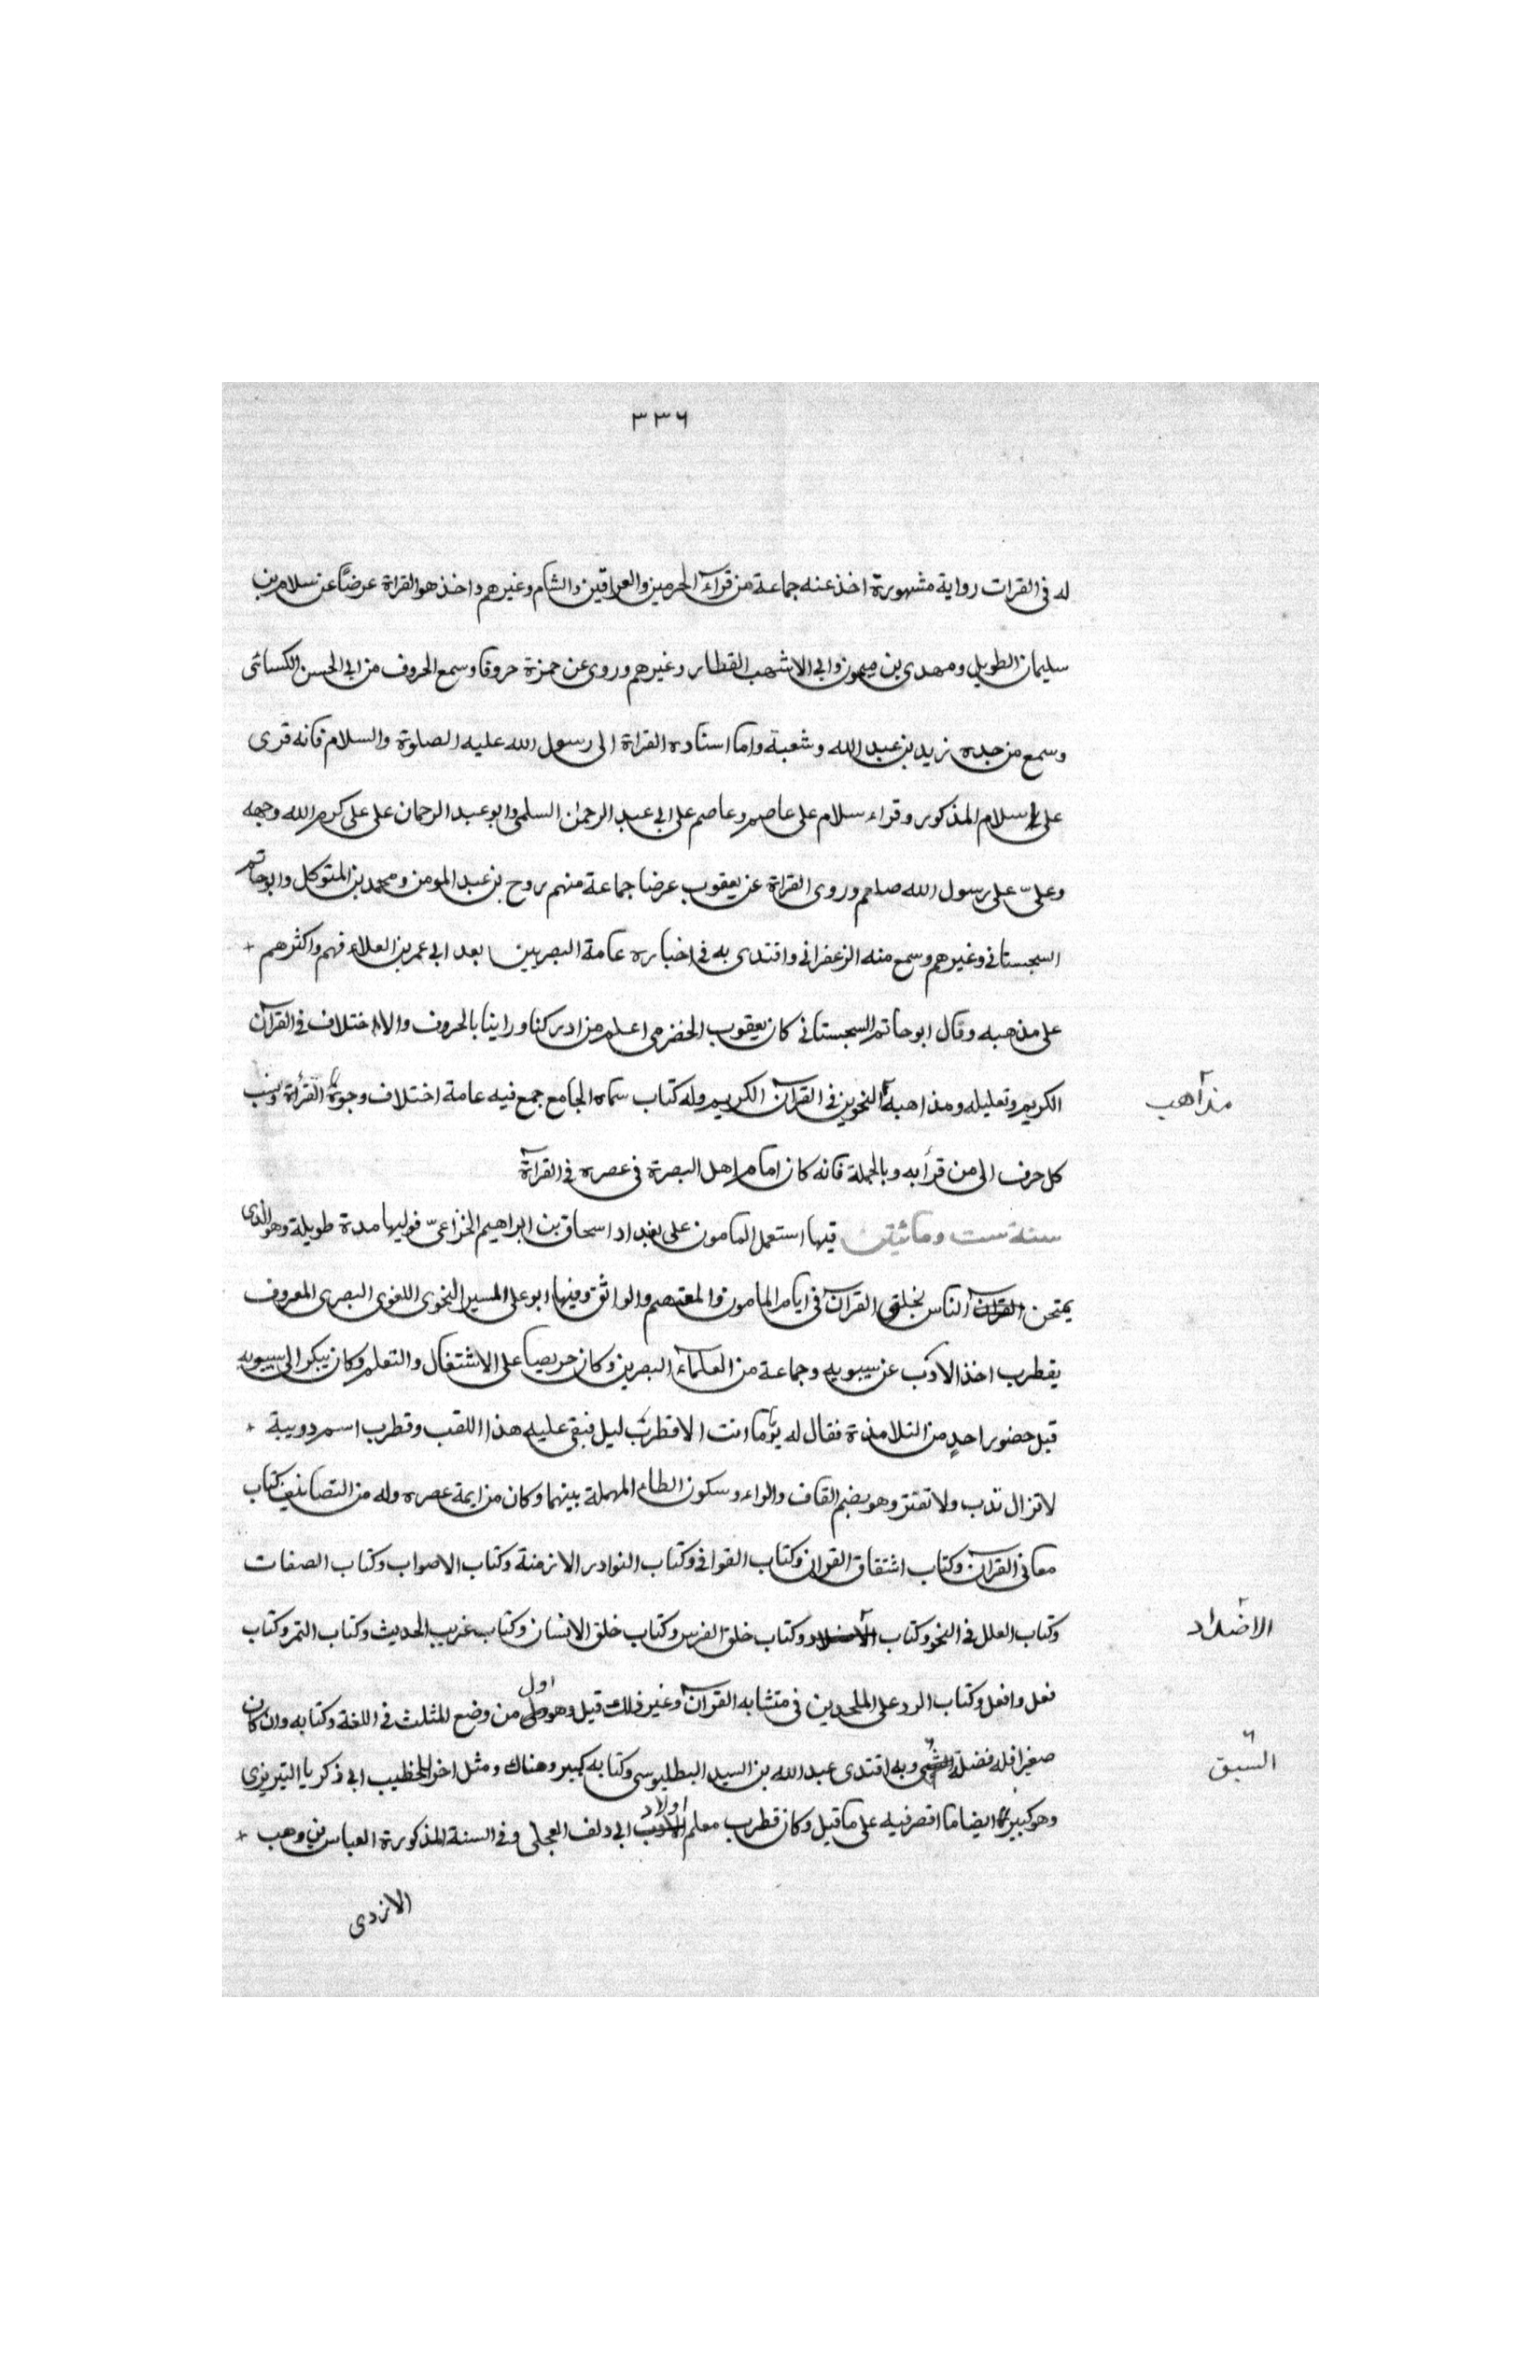 ٣٣٦
له فى القرات رواية مشهورة اخذ عنه جماعة من قرآء الحرمين والعراقين والشام وغيرهم واخذ هو القراة عرضًا عن سلام بن
سليمان الطويل ومهدى بن ميمون وابى الاشهب القطار وغيرهم وروى عن حمزة حروفا وسمع الحروف من ابى الحسن الكسائى
وسمع من جده زيد بن عبد الله وشعبة واما اسناده القراة الى رسول الله عليه الصلوة والسلام فانه قرى
على سلام المذكور وقراء سلام على عاصم وعاصم على ابى عبد الرحمٰن السلمى وابو عبد الرحمان على على كرم الله وجهه
وعلىّ على رسول الله صلعم وروى القراة عن يعقوب عرضا جماعة منهم روح بن عبد المومن ومحمد بن المتوكل وابو حاتم
السجستانى وغيرهم وسمع منه الزعفرانى واقتدى به فى اخباره عامة البصريين بعد ابى عمر بن العلاء فهم واكثرهم +
على مذهبه وقال ابو حاتم السجستانى كان يعقوب الحضرمى اعلم من ادركنا وراينا بالحروف والاختلاف فى القرآن
الكريم وتعليله ومذاهبه النحوين فى القرآن الكريم وله كتاب سماه الجامع جمع فيه عامة اختلاف وجوه القرأة ونسب
مذاهب
كل حرف الى من قرأ به وبالجملة فانه كان امام اهل البصرة فى عصره فى القرآة
سنة ست ومائتين فيها استعمل المامون على بغداد اسحاق بن ابراهيم الخزاعىّ فوليها مدة طويلة وهو الذى
يمتحن القران الناس بخلق القرآن فى ايام المامون والمعتصم والواثق وفيها ابو على المسير النحوى اللغوى البصرى المعروف
بقطرب اخذ الادب عن سيبويه وجماعة من العلمآء البصرين وكان حريصا على الاشتغال والتعلم وكان يبكر الى سيبويه
قبل حضور احدٍ من التلامذة فقال له يومًا ما انت الا قطرب ليل فبقى عليه هذا اللقب وقطرب اسم دويبة +
لاتزال تدب ولا تفتر وهو بضم القاف والراء وسكون الطاء المهملة بينهما وكان من ايمة عصره وله من التصانيف كتاب
معانى القرآن وكتاب اشتقاق القوان وكتاب القوافى وكتاب النوادر الازمنة وكتاب الاصوات وكتاب الصفات
وكتاب العلل فى النحو وكتاب الاضداد وكتاب خلق الفرس وكتاب خلق الانسان وكتاب غريب الحديث وكتاب التمر وكتاب
الاضداد
فعل وافعل وكتاب الرد على الملحدين فى متشابه القرآن وغير ذلك قيل وهو اول من وضع المثلث فى اللغة وكتابه وان كان
صغيرا فله فضلة وبه اقتدى عبد الله بن السيد البطليوسى وكتابه كبير وهناك ومثل اخر للخطيب ابى ذكريا التبريزى
السبق
وهو كبير ايضا ما اقصر فيه على ما قيل وكان قطرب معلم اولاد ابى دلف العجلى وفى السنة المذكورة العباس بن وهب +
الازدى